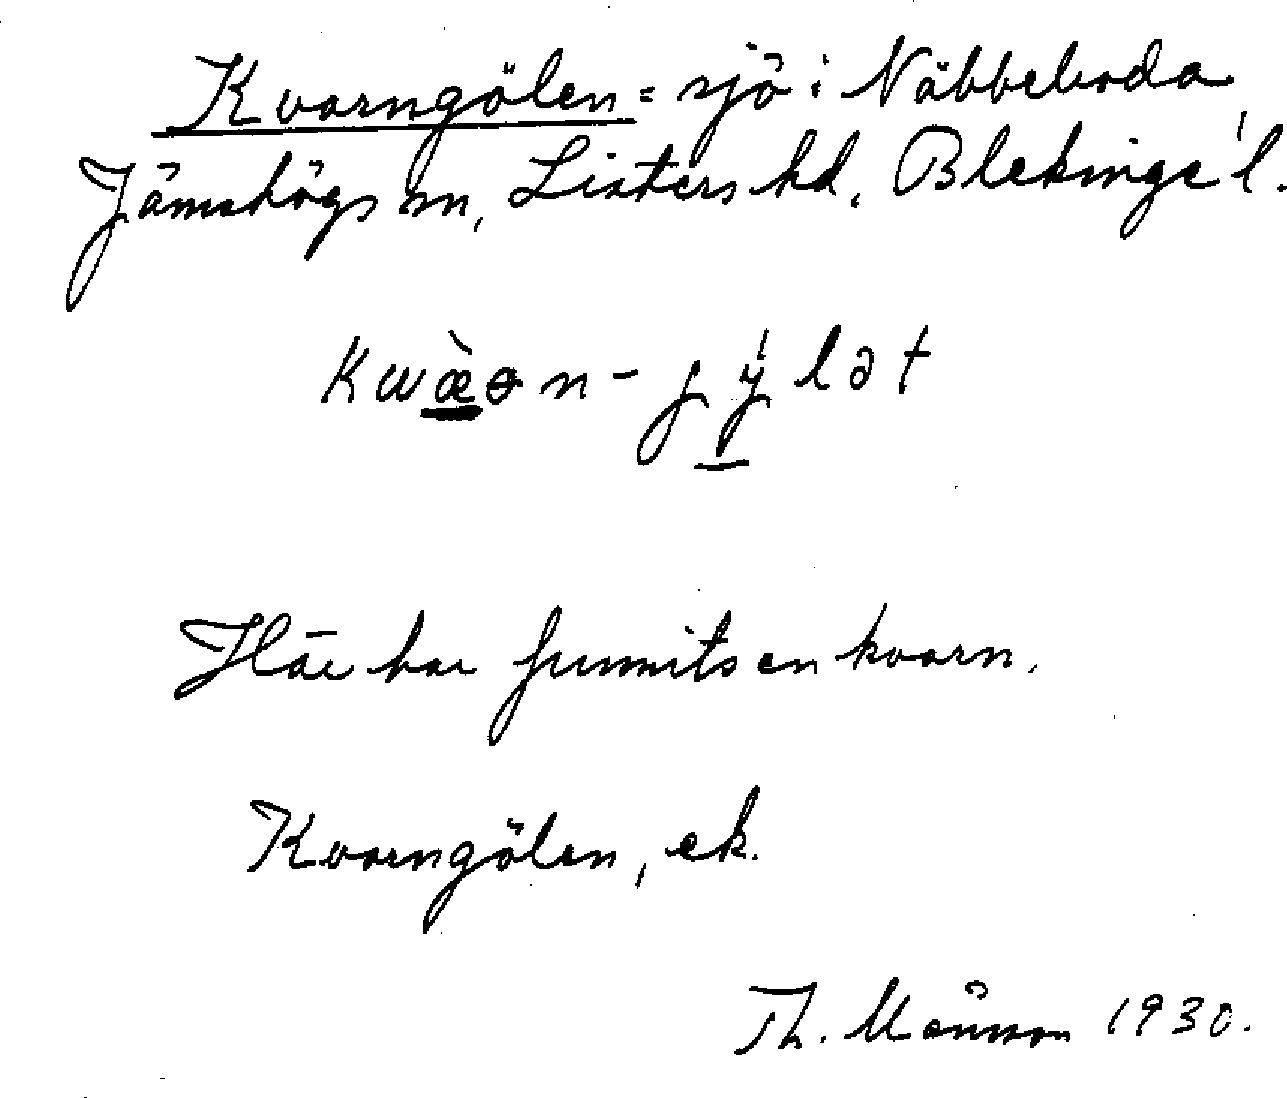 Kvarngölen = sjö i Näbbeboda
Jämshögs sn, Listers hd, Blekinge l.
Kwæ̀ən - jy̍lət
Här har funnits en kvarn.
Kvarngölen, ek.
Th. Månsson 1930.